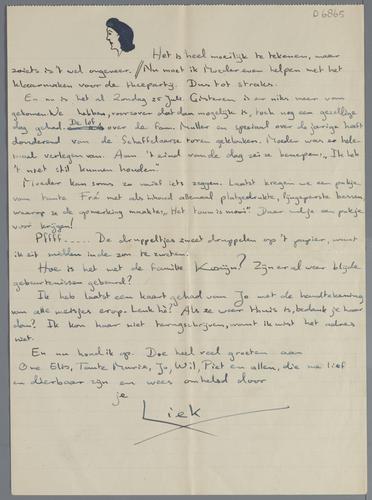 D6865
Het is heel moeilijk te tekenen, maar
zoiets is 't wel ongeveer. // Nu moet ik Moeder even helpen met het
klaarmaken voor de theeparty. Dus tot straks.
En nu is het al Zondag 25 Juli. Gisteren is er niks meer van
gekomen. We hebben, voorzover dat dan mogelijk is, toch nog een gezellige
dag gehad. De lof over de fam. Muller en speciaal over de jarige heeft
donderend van de Schaffelaarse toren geklonken. Moeder was er hele-
maal verlegen van. Aan 't eind van de dag zei ze benepen: „Ik heb
't niet stil kunnen houden"
Moeder kan soms zo iets zeggen. Laatst kregen we een pakje
van tante Fré met als inhoud allemaal platgedrukte, fijngeperste bessen
waarop ze de opmerking maakte: „Het touw is mooi" Daar wil je een pakje
voor krijgen!
Pffff..... De druppeltjes zweet druppelen op 't papier, want
ik zit midden in de zon te
Hoe is het met de familie Konijn? Zijn er al weer blijde
gebeurtenissen gebeurd?
Ik heb laatst een kaart gehad van Jo met de handtekening
van alle meisjes erop. Leuk hè? Als ze weer thuis is, bedank je haar
dan? Ik kon haar niet terugschrijven, want ik wist het adres
niet.
En nu houd ik op. Doe heel veel groeten aan
Tante Marie, Jo, Wil, Piet en allen, die me lief
en dierbaar zijn en wees omhelsd door
je
Liek